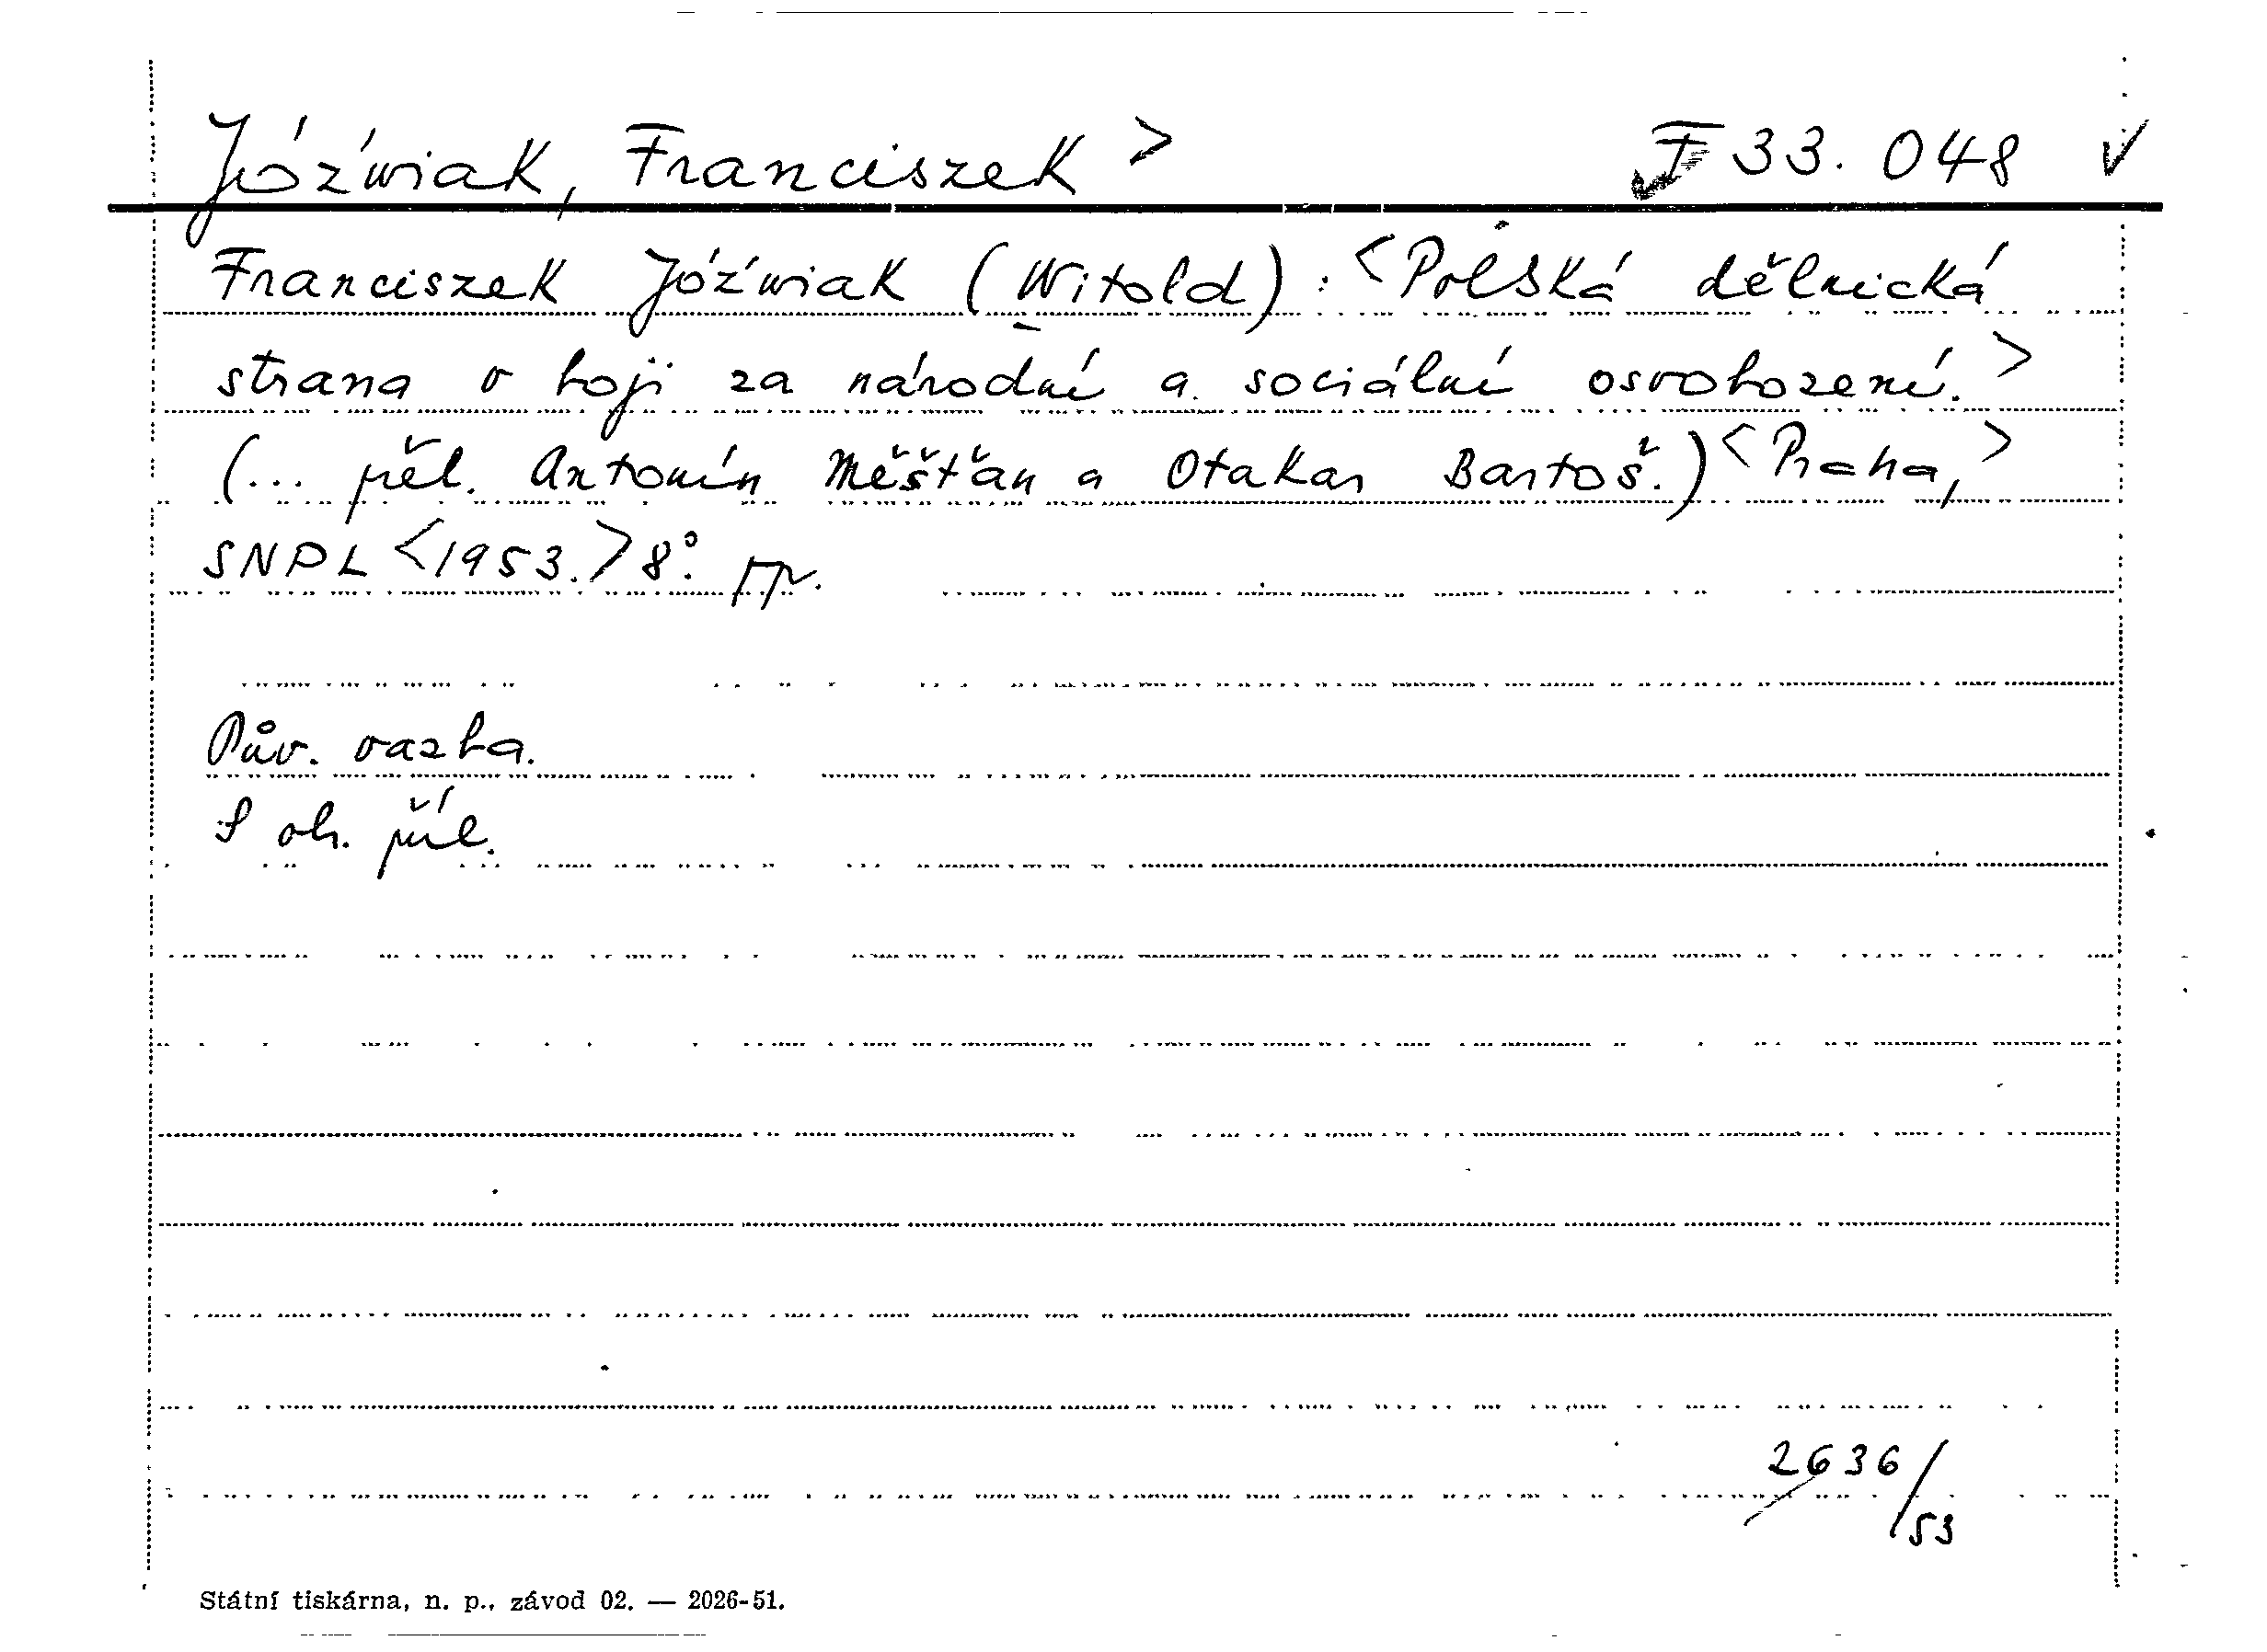 Jóźwiak, Franciszek > F 33.048 √
Franciszek Jóźwiak (Witold): <Polská dělnická
strana v boji za národní a sociální osvobození.>
(... přel. Antonín Měšťan a Otakar Bartoš.) <Praha,>
SNPL <1953.> 8°.
Pův. vazba.
S ob. příl.
2636/53
Státní tiskárna, n. p., závod 02. — 2026-51.